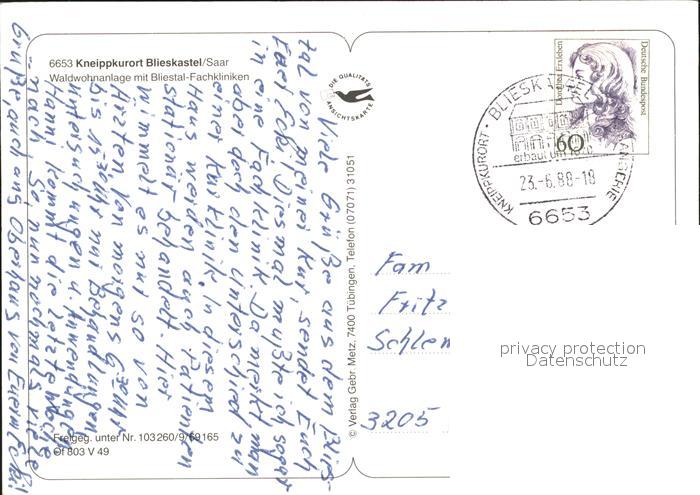 6653 Kneippkurort Blieskastel/Saar
Waldwohnanlage mit Bliestal-Fachkliniken
DIE QUALITÄTS
ANSICHTSKARTE
Dorothea Erxleben
Deutsche Bundespost
60
KNEIPPKURORT · BLIESK
erbaut um 1670
23.-6.88-18
6653
Viele Grüße aus dem Blies-
tal von meiner Kur, sendet Euch
Euer Ecki. Diesmal mußte ich sogar
in eine Fachklinik. Da merkt man
aber doch den Unterschied zu
einer Kurklinik. In diesem
Haus werden auch Patienten
stationär behandelt. Hier
wimmelt es nur so von
Ärzten. Von morgens 6 Uhr
bis 15 Uhr nur Behandlungen
Untersuchungen u. Anwendungen
Hanni kommt die letzte Woche
nach. So nun nochmals viele
Grüße, auch aus Oberhaus von Eurem Ecki!
Fam
Fritz
Schlem
3205
© Verlag Gebr. Metz, 7400 Tübingen, Telefon (07071) 31051
Freigeg. unter Nr. 103260/9/69165
Of 803 V 49
privacy protection
Datenschutz